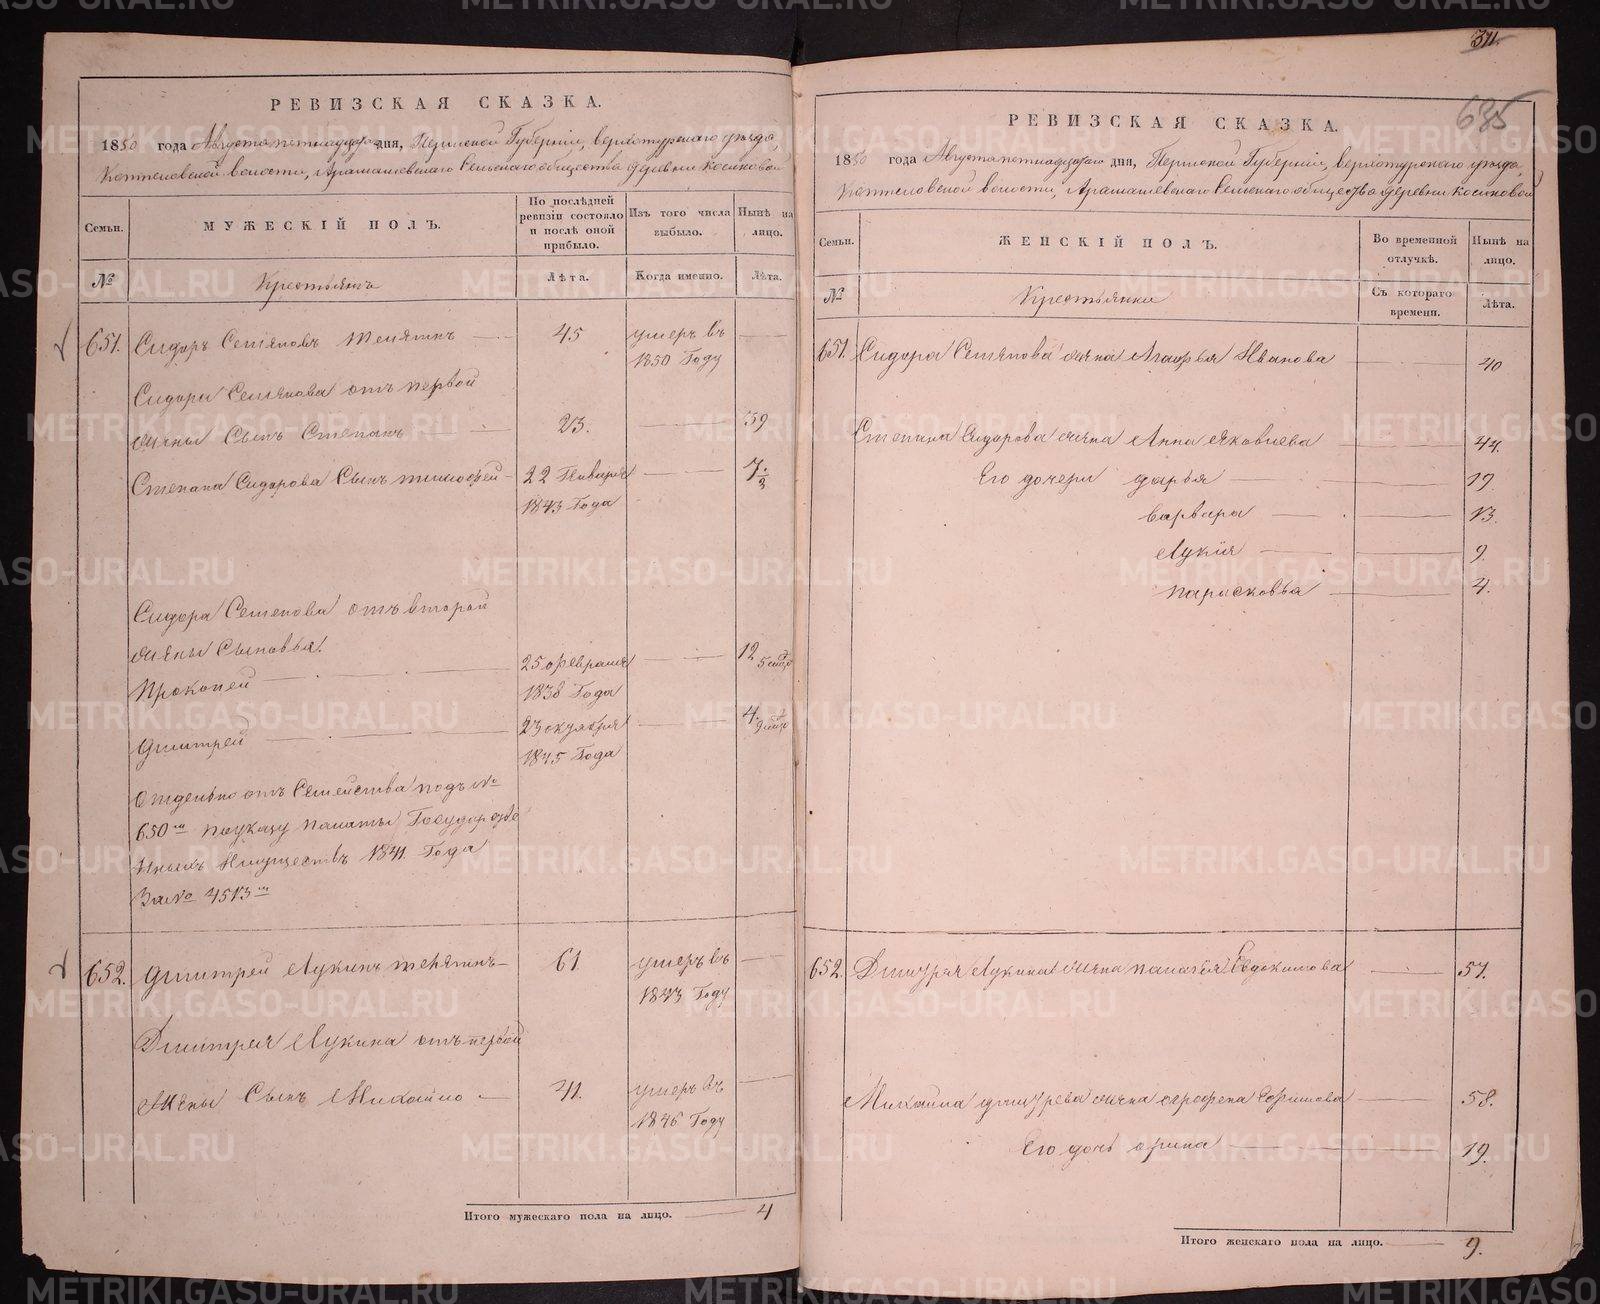 311.
685
РЕВИЗСКАЯ СКАЗКА.
1850 года Августа пятнадцатаго дня, Пермской Губерніи, верхотурскаго уѣзда,
волости, Арамашевскаго Сельскаго общества деревни Косиковой
Семьи.
МУЖЕСКІЙ ПОЛЪ.
По послѣдней ревизіи состояло и послѣ оной прибыло.
Изъ того числа выбыло.
Нынѣ на лицо.
№
Крестьянъ
Лѣта.
Когда именно.
Лѣта.
651. Сидоръ Семяновъ 45 умеръ въ
1850 Году
Сидора Семянова отъ первой
жены Сынъ Степанъ 23. 39
Степана Сидорова Сынъ тимофей 22 Января 7 1/2
1843 Года
Сидора Семенова отъ второй
жены Сыновья
Прокопей 25 февраля 12
1838 Года
Дмитрей 23 октября 4
1845 Года
Отдельно отъ Семейства подъ №
650м поуказу палаты Государстве
нныхъ Имуществъ 1841 Года
За №
652. Дмитрей Лукинъ 61 умеръ въ
1843 Году
Дмитрия Лукина отъ первой
жены Сынъ Михайло 41. умеръ въ
1846 Году
Итого мужескаго пола на лицо. 4
РЕВИЗСКАЯ СКАЗКА.
1850 года Августа пятнадцатаго дня, Пермской Губерніи, верхотурскаго уѣзда,
волости, Арамашевскаго Сельскаго общества деревни Косиковой
Семьи.
ЖЕНСКІЙ ПОЛЪ.
Во временной отлучкѣ.
Нынѣ на лицо.
№
Крестьянки
Съ котораго времени.
Лѣта.
651. Сидора Семянова жена Агафья Иванова 40
Степана Сидорова жена Анна Яковлева 44.
Его дочери дарья 19
варвара 13.
Лукія 9.
парасковья 4.
652. Дмитрия Лукина жена палагея Евдокимова 57.
Михайла дмитрева жена аграфена Ефимова 58.
Его дочь арина 19.
Итого женскаго пола на лицо. 9.
METRIKI.GASO-URAL.RU